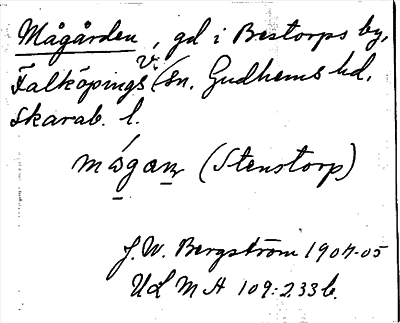 Mågården, gd i Bestorps by,
Falköpings v. sn. Gudhems hd,
Skarab. l.
(Stenstorp)
J. W. Bergström 1904-05
ULMA 109:233 b.